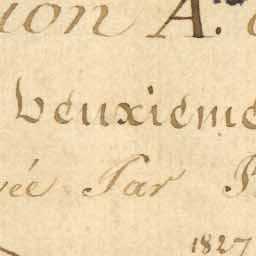 ion A.
Deuxieme
vée Par
1827